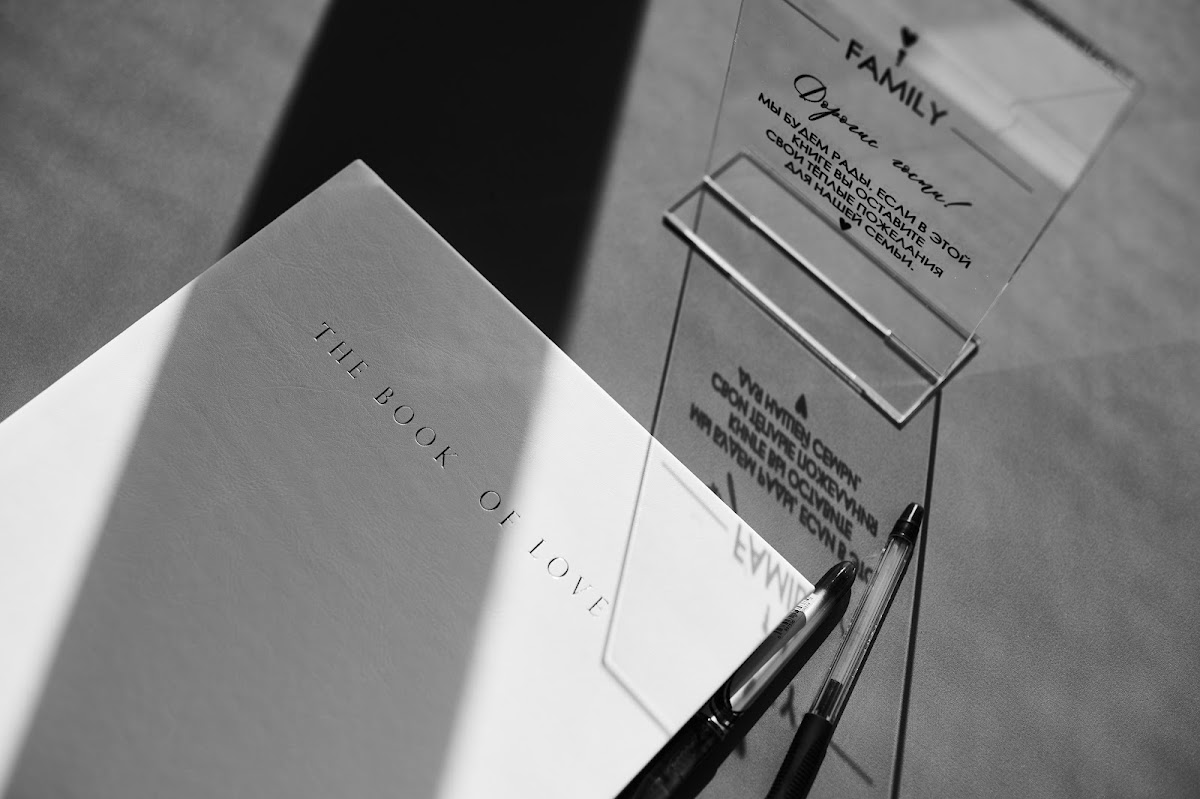 THE BOOK OF LOVE
FAMILY
Дорогие гости!
МЫ БУДЕМ РАДЫ, ЕСЛИ В ЭТОЙ
КНИГЕ ВЫ ОСТАВИТЕ
СВОИ ТЕПЛЫЕ ПОЖЕЛАНИЯ
ДЛЯ НАШЕЙ СЕМЬИ.